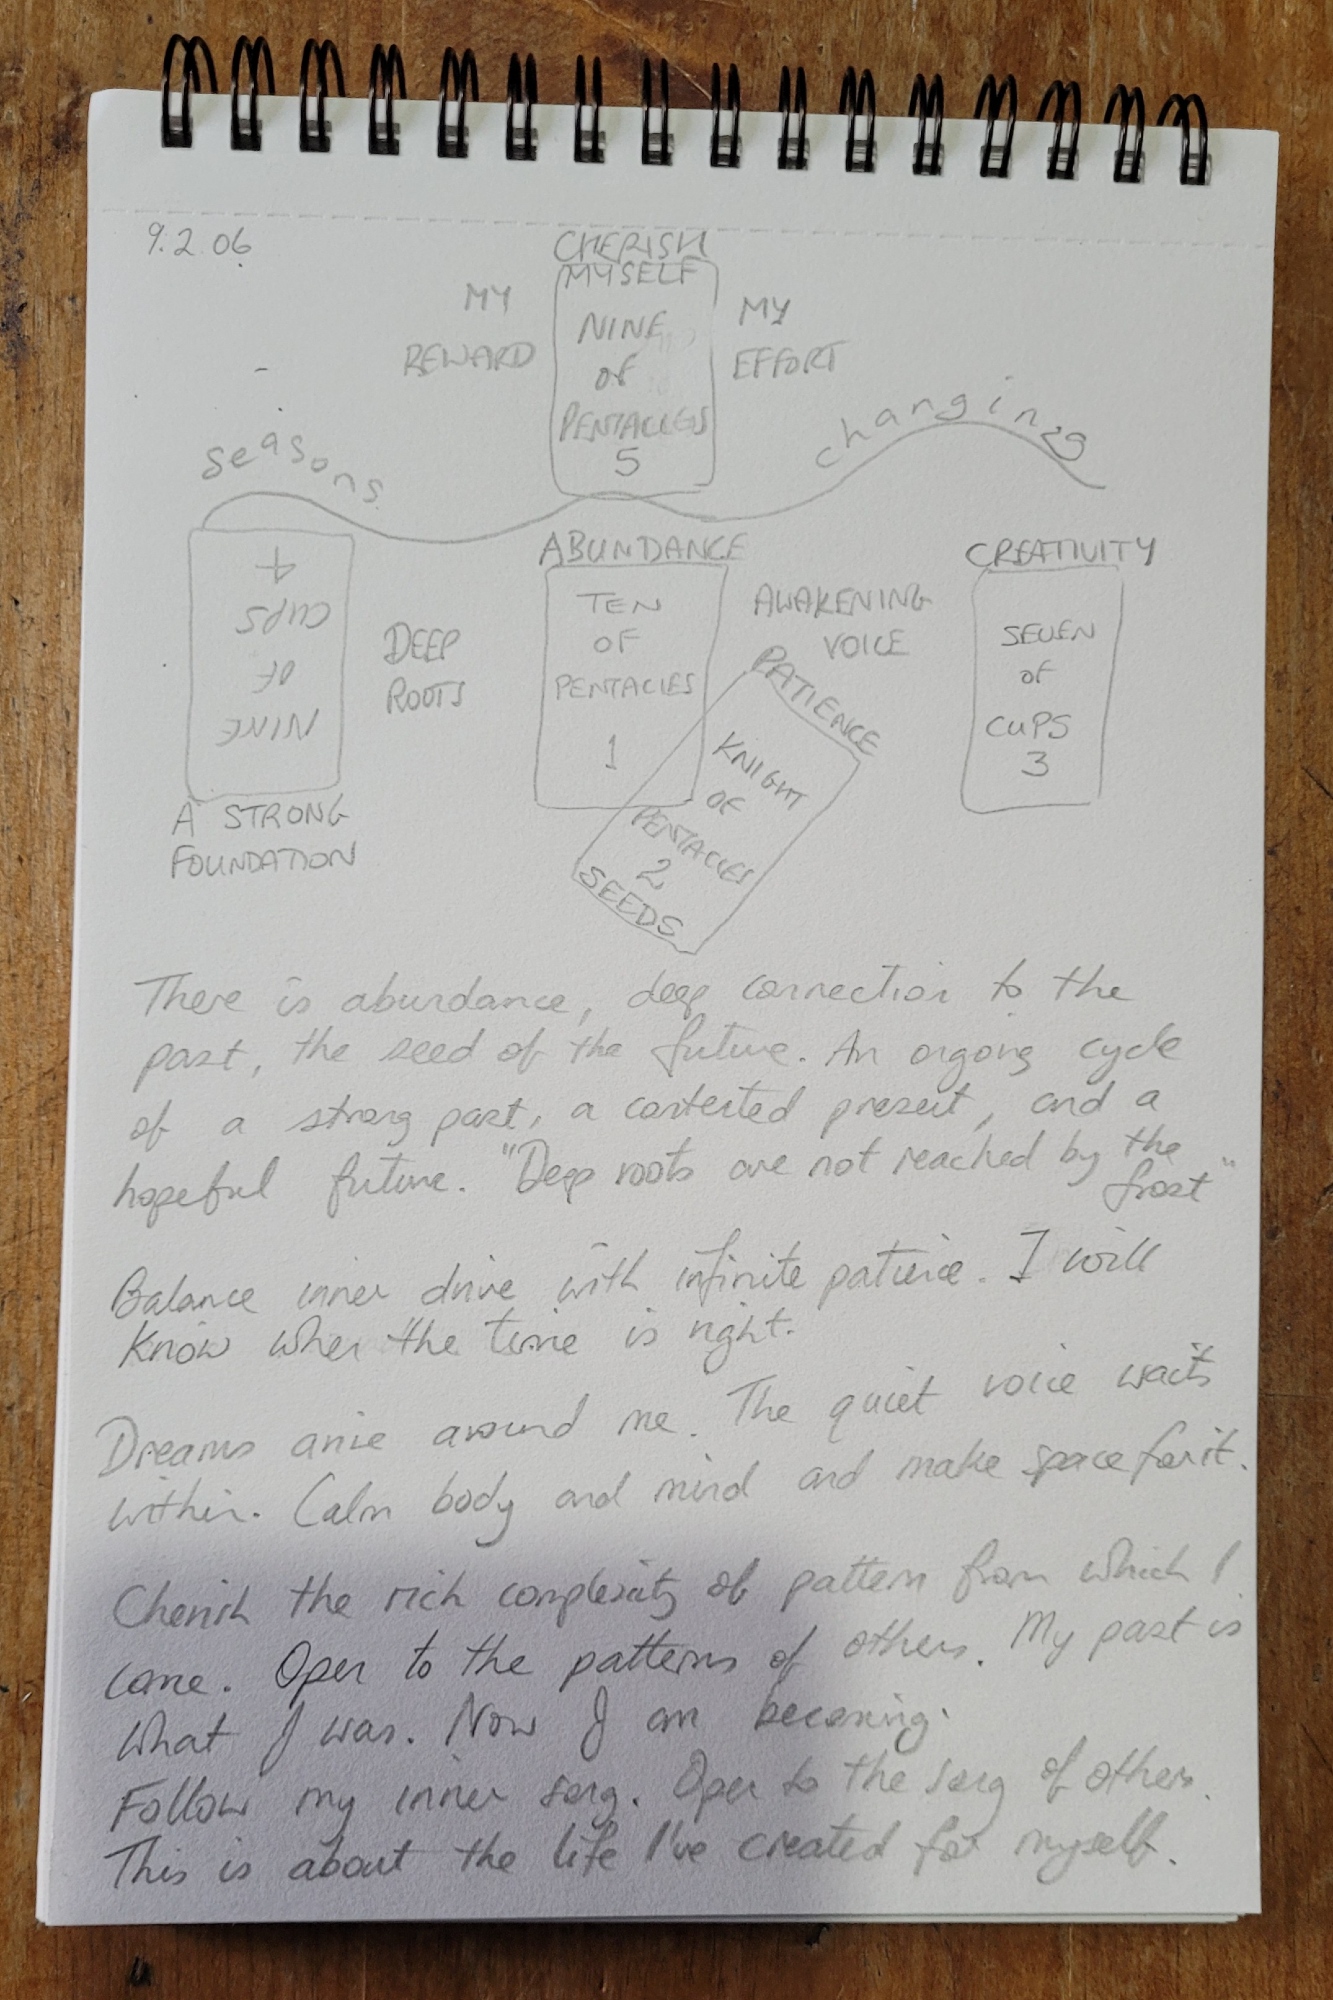 9.2.06
CHERISH
MYSELF
MY
REWARD
NINE
OF
PENTACLES
5
MY
EFFORT
seasons
changing
NINE
OF
CUPS
4
A STRONG
FOUNDATION
DEEP
ROOTS
ABUNDANCE
TEN
OF
PENTACLES
1
AWAKENING
VOICE
PATIENCE
KNIGHT
OF
PENTACLES
2
SEEDS
CREATIVITY
SEVEN
OF
CUPS
3
There is abundance, deep connection to the
past, the seed of the future. An ongoing cycle
of a strong past, a contented present, and a
hopeful future. "Deep roots are not reached by the
frost"
Balance inner drive with infinite patience. I will
know when the time is right.
Dreams arrive around me. The quiet voice waits
within. Calm body and mind and make space for it.
Cherish the rich complexity of pattern from which I
come. Open to the patterns of others. My past is
what I was. Now I am becoming.
Follow my inner song. Open to the song of others.
This is about the life I've created for myself.